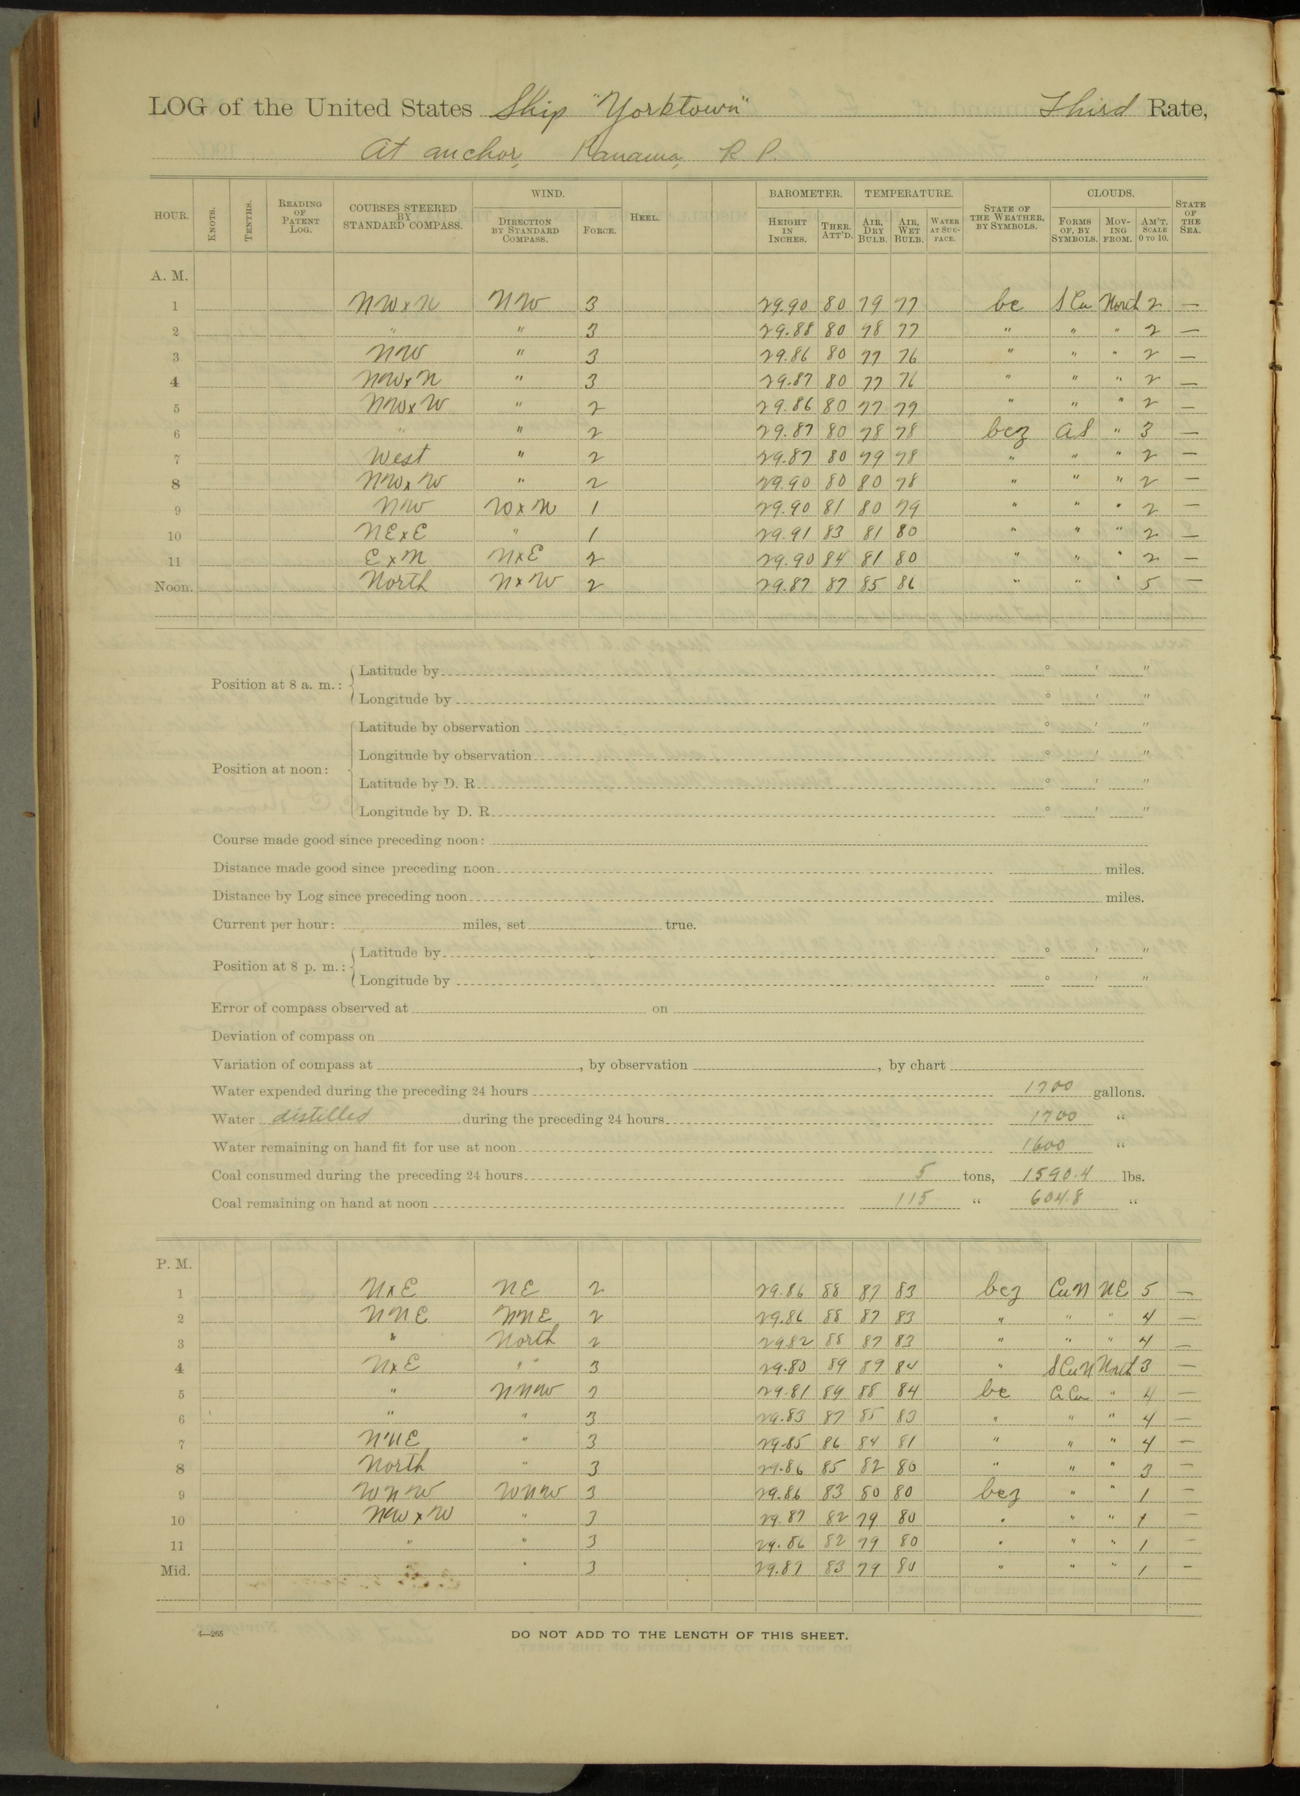 LOG of the United States Ship "Yorktown" Third Rate,
At anchor, Panama, R. P.
HOUR. KNOTS. TENTHS. READING OF PATENT LOG. COURSES STEERED BY STANDARD COMPASS. WIND. DIRECTION BY STANDARD COMPASS. FORCE. HEEL. BAROMETER. HEIGHT IN INCHES. THER. ATT'D. TEMPERATURE. AIR, DRY BULB. AIR, WET BULB. WATER AT SURFACE. STATE OF THE WEATHER, BY SYMBOLS. CLOUDS. FORMS OF, BY SYMBOLS. MOVING FROM. AM'T. SCALE 0 TO 10. STATE OF THE SEA.
A. M.
1 NWxN NW 3 29.90 80 79 77 bc S Cu North 2 —
2 " " 3 29.88 80 78 77 " " " 2 —
3 NW " 3 29.86 80 77 76 " " " 2 —
4 NWxN " 3 29.87 80 77 76 " " " 2 —
5 NWxW " 2 29.86 80 77 77 " " " 2 —
6 " " 2 29.87 80 78 78 bcz A S " 3 —
7 West " 2 29.87 80 79 78 " " " 2 —
8 NWxW " 2 29.90 80 80 78 " " " 2 —
9 NW WxN 1 29.90 81 80 79 " " " 2 —
10 NExE " 1 29.91 83 81 80 " " " 2 —
11 ExN NxE 2 29.90 84 81 80 " " " 2 —
Noon. North NxW 2 29.87 87 85 86 " " " 5 —
Position at 8 a. m.: Latitude by ° ' "
Longitude by ° ' "
Position at noon: Latitude by observation ° ' "
Longitude by observation ° ' "
Latitude by D. R. ° ' "
Longitude by D. R. ° ' "
Course made good since preceding noon:
Distance made good since preceding noon miles.
Distance by Log since preceding noon miles.
Current per hour: miles, set true.
Position at 8 p. m.: Latitude by ° ' "
Longitude by ° ' "
Error of compass observed at on
Deviation of compass on
Variation of compass at , by observation , by chart
Water expended during the preceding 24 hours 1700 gallons.
Water distilled during the preceding 24 hours 1700 "
Water remaining on hand fit for use at noon 1600 "
Coal consumed during the preceding 24 hours 5 tons, 1590.4 lbs.
Coal remaining on hand at noon 115 " 604.8 "
P. M.
1 NxE NE 2 29.86 88 87 83 bcz CuN NE 5 —
2 NNE NNE 2 29.86 88 87 83 " " " 4 —
3 " North 2 29.82 88 87 83 " " " 4 —
4 NxE " 3 29.80 89 89 84 " S CuN North 3 —
5 " NNW 2 29.81 89 88 84 bc Ci Cu " 4 —
6 " " 3 29.83 87 85 83 " " " 4 —
7 NNE " 3 29.85 86 84 81 " " " 4 —
8 North " 3 29.86 85 82 80 " " " 3 —
9 WNW WNW 3 29.86 83 80 80 bcz " " 1 —
10 NWxW " 3 29.87 82 79 80 " " " 1 —
11 " " 3 29.86 82 79 80 " " " 1 —
Mid. " 3 29.87 83 79 80 " " " 1 —
4—265
DO NOT ADD TO THE LENGTH OF THIS SHEET.